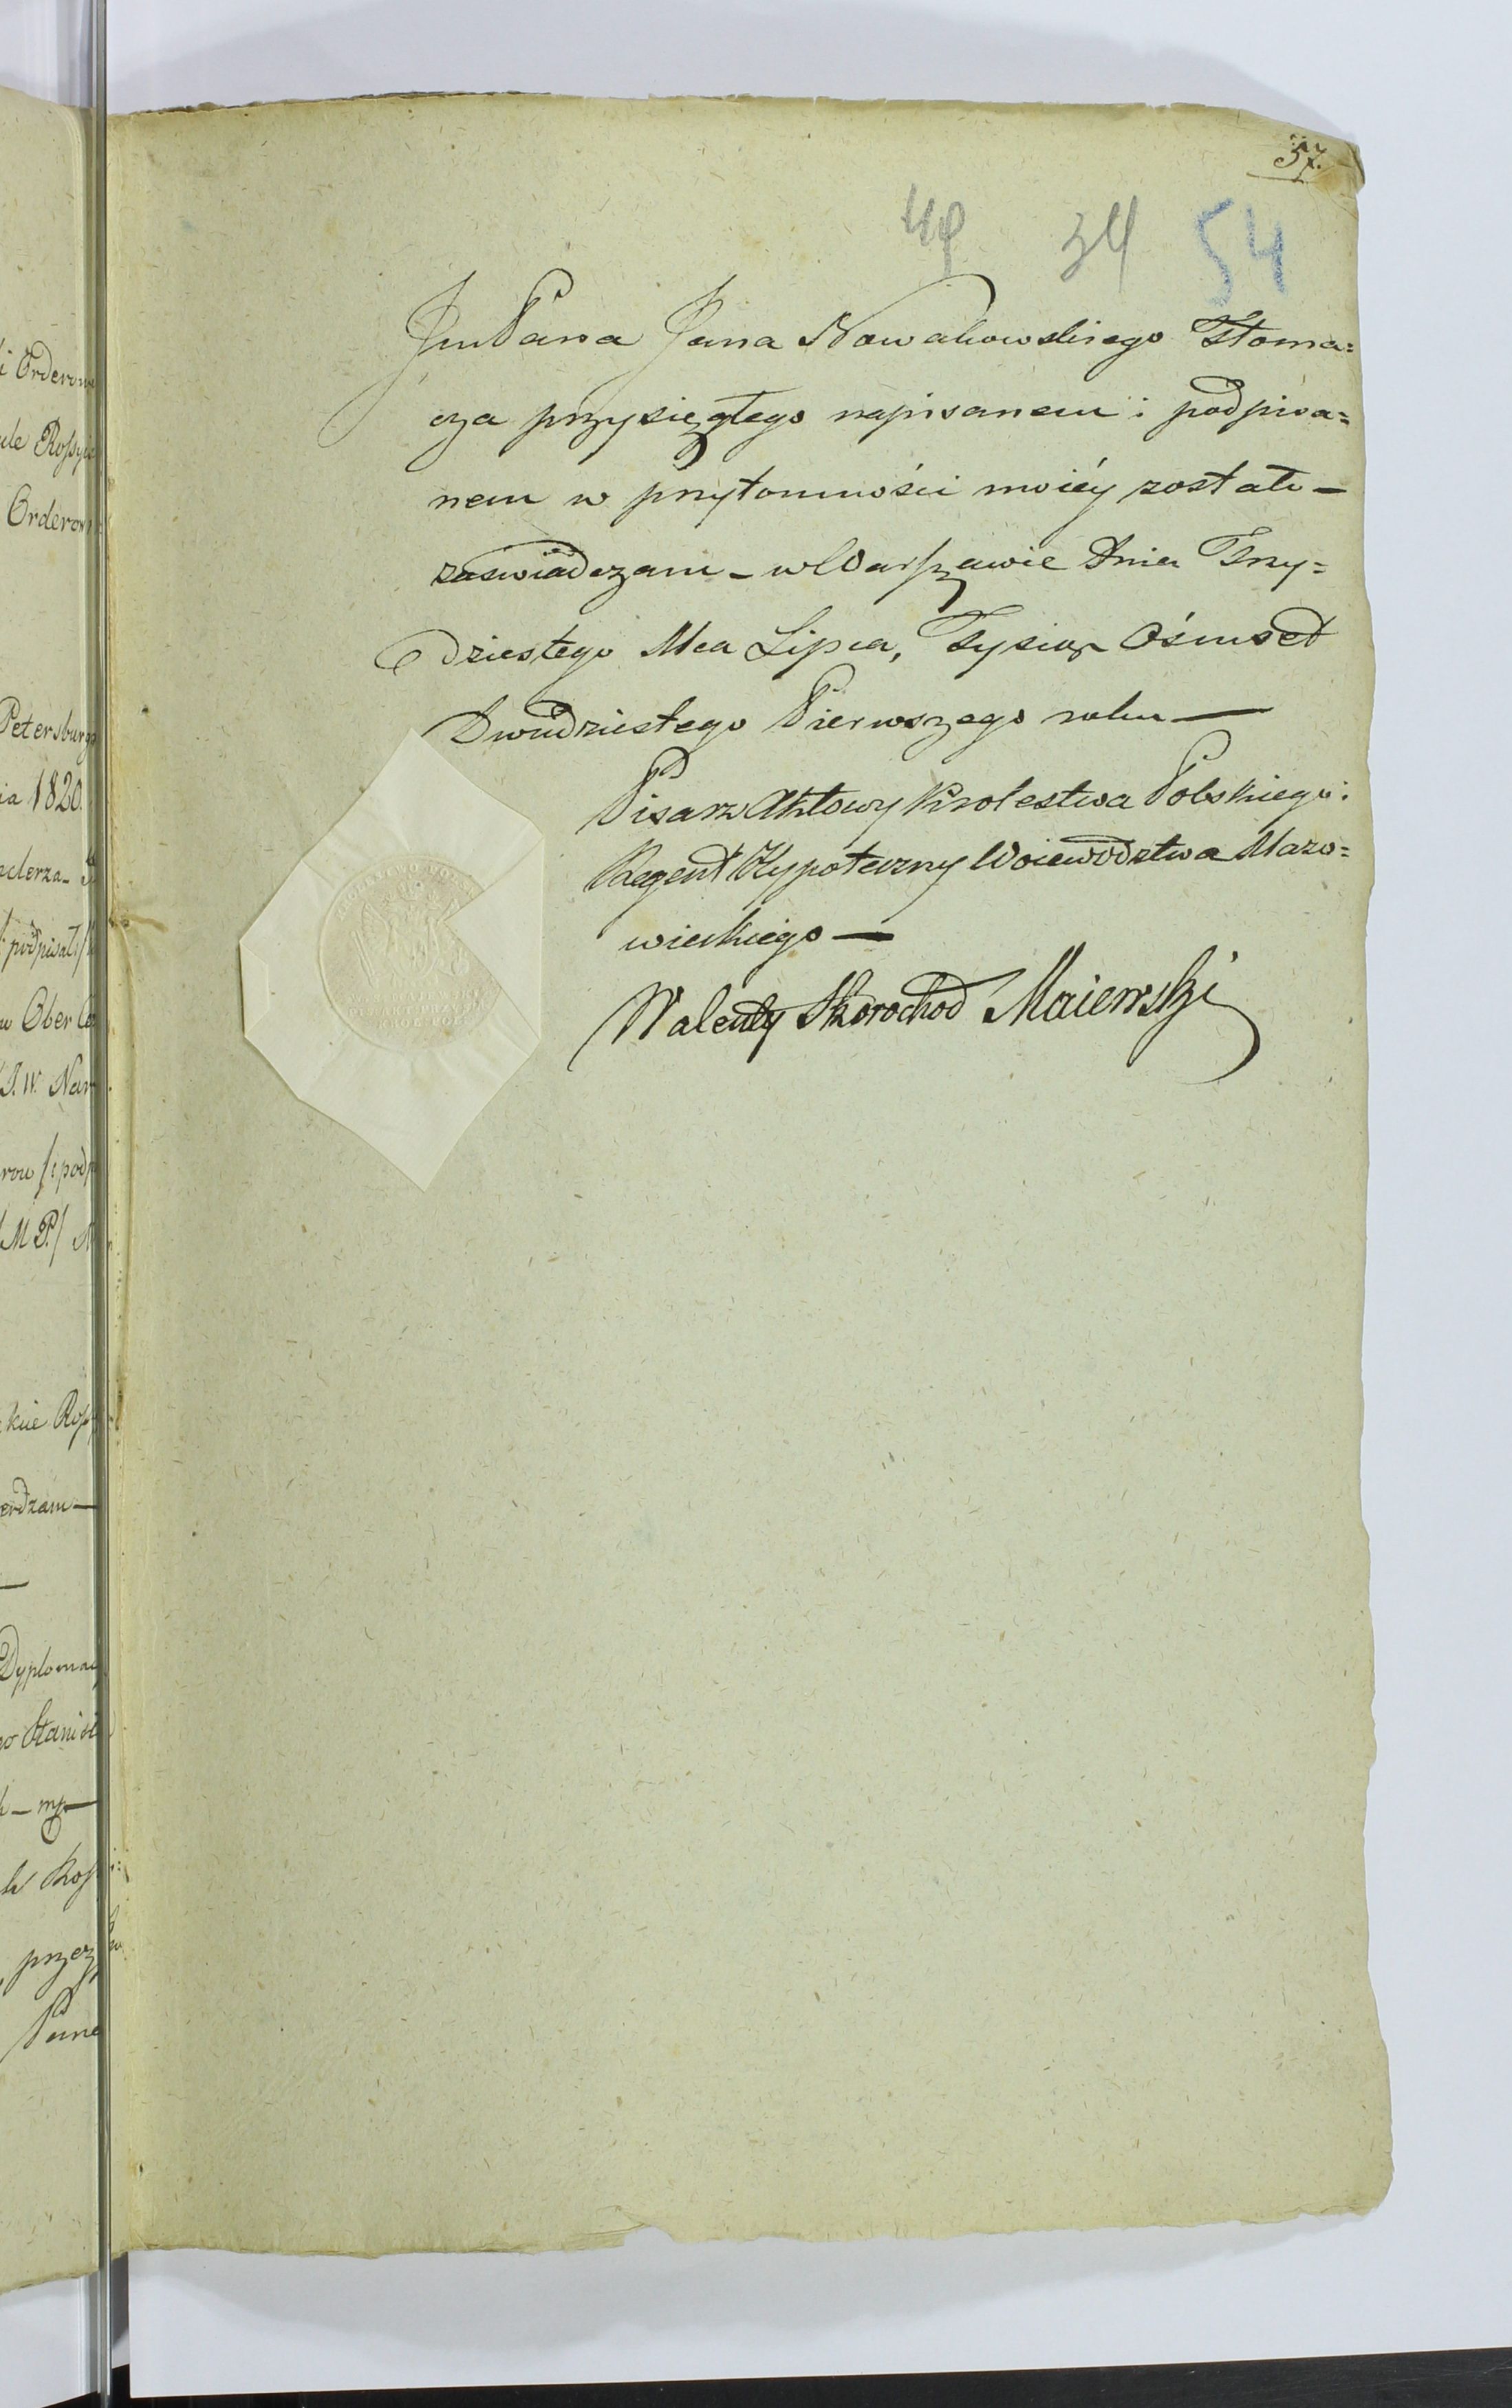 57.
49 34 54
JmPana Jana Nowakowskiego Tłoma=
cza przysięgłego napisanem i podpisa=
nem w przytomności moiéy zostało —
zaświadczam — w Warszawie Dnia Trzy=
dziestego Mca Lipca, Tysiąc Ośmset
Dwudziestego Pierwszego roku —
Pisarz Aktowy Krolestwa Polskiego:
Regent Hypoteczny Woiewodztwa Mazo=
wieckiego —
Walenty Skorochod Maiewski
i Orderow
Orderow
Petersburg
ia 1820.
podpisał
w Ober
J. W. Nar
M P./
erdzam —
Dyploma
— my —
przez